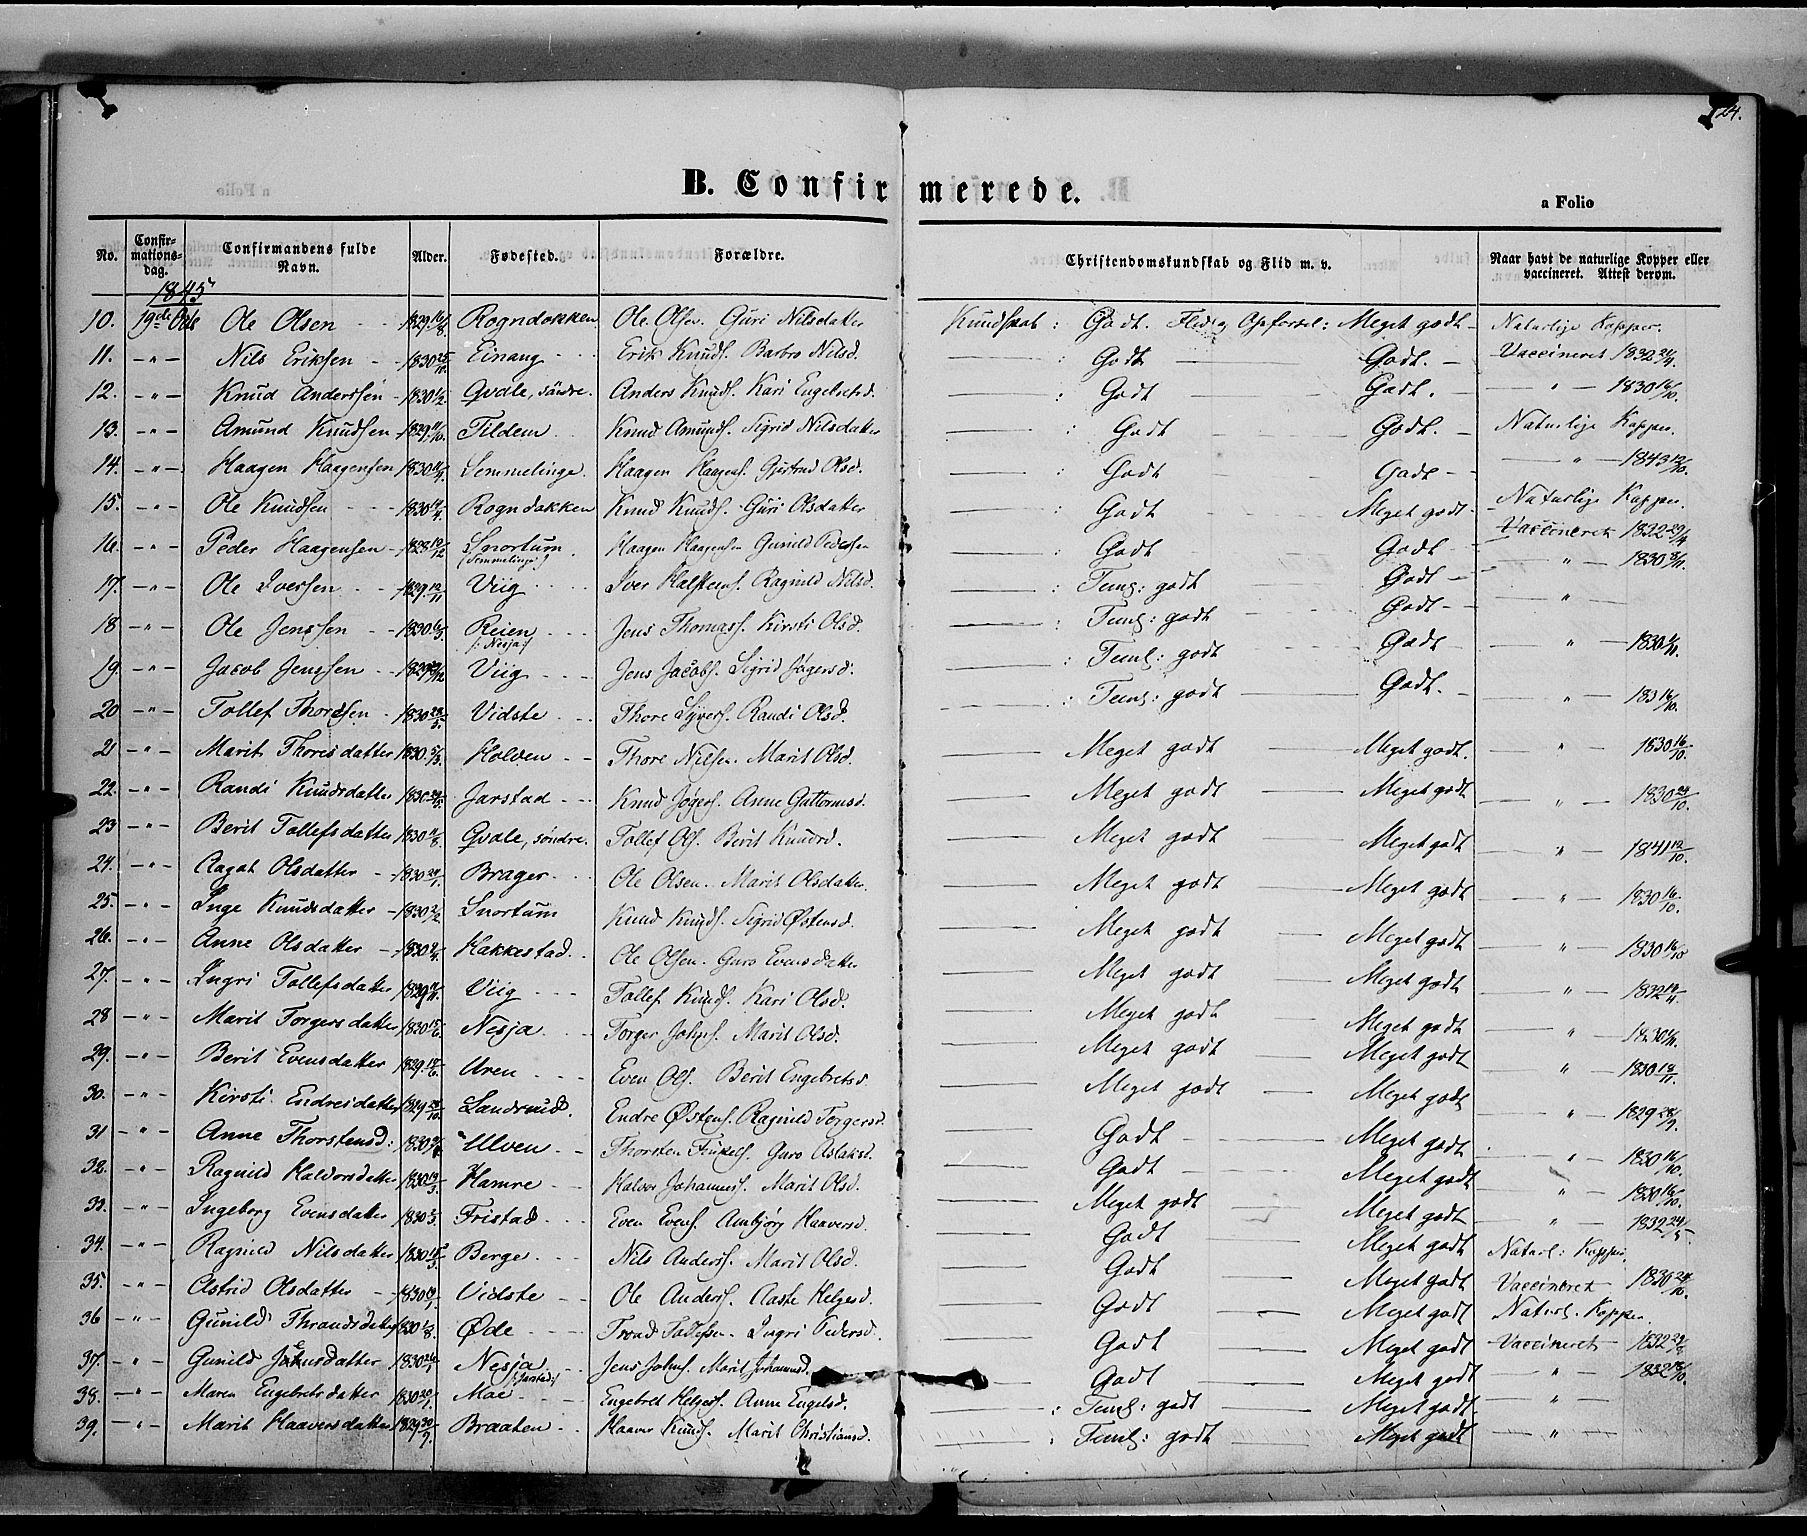 124.
B. Confirmerede.
a Folio
No. Confirmationsdag. Confirmandens fulde Navn. Alder. Fødested. Forældre. Christendomskundskab og Flid m. v. Naar havt de naturlige Kopper eller vaccineret. Attest derom.
1845
10. 19de Ole Olsen - - 1829 16/8 Rogndokken Ole Olsen. Guri Nilsdatter Kundskab : Godt. Flid og Opførsel : Meget godt - Naturlige Kopper.
11. - " - Nils Eriksen - 1830 25/10 Einang - - Erik Knuds. Barbro Nilsd. : Godt Godt. - Vaccineret 1832 29/9
12. - " - Knud Anderssen - 1830 1/2 Qvale, søndre. Anders Knuds. Kari Engebretsd. : Godt Godt. - " - 1830 16/10.
13. - " - Amund Knudsen - 1829 11/10 Tildem - - Knud Amunds. Sigrid Nilsdatter : Godt Godt. - Naturlige Kopper.
14. - " - Haagen Haagensen 1830 Semmelinge. Haagen Haagens. Gjertrud Olsd. : Godt Godt - " - 1843 12/10.
15. - " - Ole Knudsen - - - 1830 Rogndokken Knud Knuds. Guri Olsdatter Godt Meget godt - Naturlige Kopper.
16. - " - Peder Haagensen - 1828 19/12 Snortum (Semmelinge) Haagen Haagensen Gunild Godt Godt - Vaccineret 1832 29/9
17. - " - Ole Iversen - - 1829 12/11 Viig - - - Iver Halstens. Ragnild Nilsd. : Teml: godt Godt - " - 1830
18 - " - Ole Jenssen - - 1830 Reien - - - (: Nesja) Jens Thomass. Kirsti Olsd. Teml: godt Godt - " -
19. - " - Jacob Jenssen - - 1829 Viig - - - Jens Jacobs. Sigrid Jøgersd. : Teml: godt Godt " - 1830
20 - " - Tollef Thoresen - 1830 Vidste - - - Thore Syvers. Randi Olsd. : Teml: godt Godt. - " - 1831
21 - " - Marit Thoresdatter 1830 Holven - - Thore Nilsen. Marit Olsd. Meget godt Meget godt. " - 1830 16/10.
22. - " - Randi Knudsdatter 1830 Jarstad - - - Knud Jøgers. Anne Guttormsd. Meget godt Meget godt " - 1830 24/10.
23 - " - Berit Tollefsdatter 1830 Qvale, søndre. Tollef Ols. Berit Knudsd. Meget godt Meget godt " - 1841 12/10.
24. - " - Ragat Olsdatter - 1830 Brager - - - Ole Olsen. Marit Olsdatter. Meget godt Meget godt " - 1830 16/10.
25. - " - Inge Knudsdatter - 1830 Snortum Knud Knuds. Sigrid Østensd. Meget godt Meget godt " - 1830 16/10
26. - " - Anne Olsdatter - 1830 Hakkestad. Ole Olsen. Guro Evensdatter Meget godt Meget godt " - 1832
27. - " - Ingri Tollefsdatter 1829 Viig - - - Tollef Knuds. Kari Olsd. Meget godt Meget godt " - 1830
28 - " - Marit Torgersdatter 1830 Nesja - - Torger Johns. Marit Olsd. Meget godt Meget godt " - 1830 18/11.
29. - " - Berit Evensdatter 1829 Uren - - - Even Ols. Berit Engebretsd. Meget godt Meget godt " - 1829 28/9.
30. - " - Kirsti Endresdatter 1829 Landsend. Endre Østens. Ragnild Torgersd. Godt Meget godt " - 1830 16/10.
31 - " - Anne Thorstensd: 1830 Ulven - - Thorsten Finkels. Guro Aslaksd. Godt Meget godt " - 1830 16/10.
32. - " - Ragnild Haldorsdatter 1830 Hamre - - Halvor Johanness. Marit Olsd. Meget godt Meget godt " - 1832 24/5.
33. - " - Ingeborg Evensdatter 1830 Fristad - - Even Evens. Ambjørg Haaversd. Godt Meget godt Naturl: Kopper.
34. - " - Ragnild Nilsdatter 1830 Berge - - Nils Anders. Marit Olsd. Godt Meget godt Vaccineret 1830 24/10.
35. - " - Astrid Olsdatter - 1830 Vidste - - Ole Anders. Aaste Helgesd. Godt Meget godt Naturl. Kopper.
36 - " - Gunild Thrandsdatter 1830 Øde - - - Trond Tollefsen. Ingri Pedersd. Godt Meget godt Vaccineret 1832
37. - " - Gunild Jensdatter 1830 Nesja - - (Jarstad:) Jens Johns. Marit Johannesd. Godt Meget godt 1832
38. - " - Maren Engebretsdatter 1830 Moe - - - Engebret Helges. Anne Engelsd. : Teml: godt Meget godt. - " -
39. - " - Marit Haaversdatter 1829 30/9. Braaten - - Haaver Knuds. Marit Christiansd. : Teml: godt Meget godt - " -